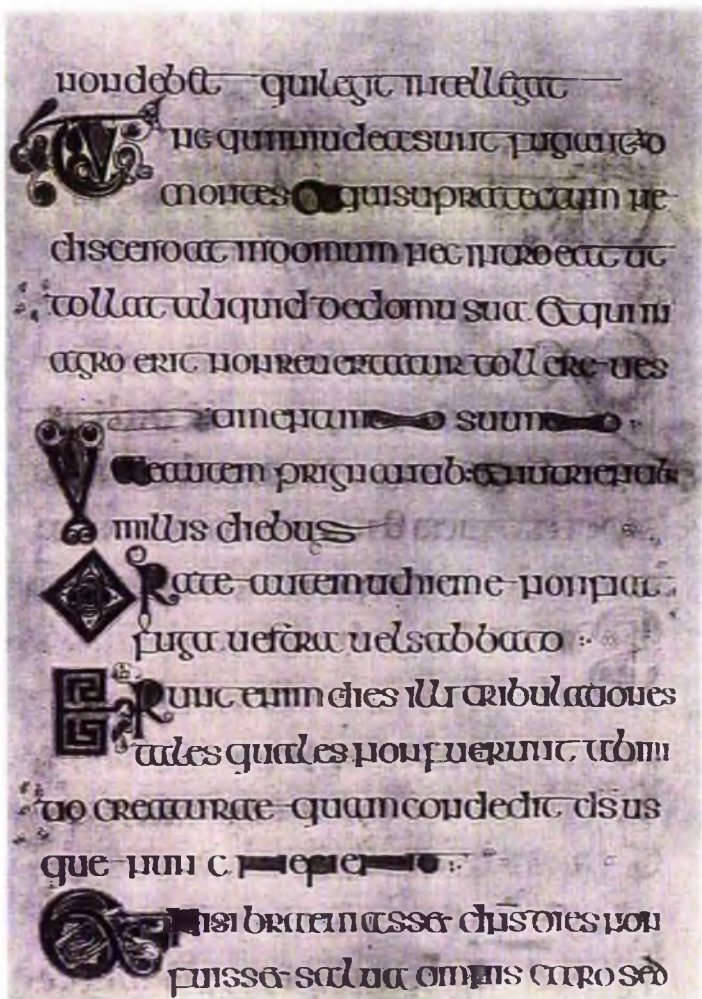 non debet qui legit intellegat
Tunc qui in iudea sunt fugiant ad
montes & qui supra tectum ne
discendat in domum nec introeat ut
tollat aliquid de domu sua Et qui in
agro erit non reuertatur tollere ues
timentum suum :·
Vae autem prignantab: & nutrientab:
in illis diebus
Orate autem ut hieme non fiat
fuga uestra uel sabbato :·
Erunt enim dies illi tribulationes
tales quales non fuerunt ab ini
tio creaturae quam condedit ds us
que nunc neque :·
Et nisi breuiasset dns dies non
fuisset salua omnis caro sed